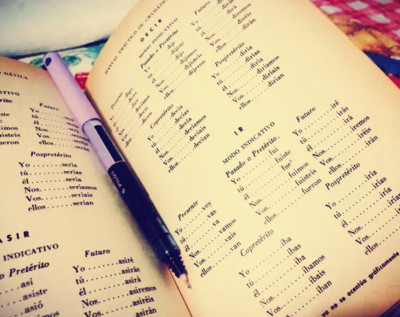 Futuro
Yo
tú
él
Nos.
Vos.
ellos.
Pospretérito
Yo.......sería
tú.......serías
él.......sería
Nos.......seríamos
Vos.......seríais
ellos.......serían
ASIR
INDICATIVO
Pretérito
así
asiste
asió
asimos
Futuro
Yo.......asiré
tú.......asirás
él.......asirá
Nos.......asiremos
Vos.......asiréis
ellos.......asirán
MANUAL PRÁCTICO DE
DECIR
MODO INDICATIVO
Presente
Pasado o Pretérito
Yo.......dije
tú
él.......dijo
Nos.......dijimos
Vos.......dijisteis
ellos.......dijeron
Copretérito
Yo.......decía
tú.......decías
él.......decía
Nos.......decíamos
Vos.......decíais
ellos.......decían
Futuro
diré
dirás
dirá
diremos
diréis
dirán
Pospretérito
Yo.......diría
tú.......dirías
él.......diría
Nos.......diríamos
Vos.......diríais
ellos.......dirían
IR
MODO INDICATIVO
Presente
Yo.......voy
tú.......vas
él.......va
Nos.......vamos
Vos.......vais
ellos.......van
Pasado o Pretérito
Yo.......fui
tú.......fuiste
él.......fue
Nos.......fuimos
Vos.......fuisteis
ellos.......fueron
Copretérito
Yo.......iba
tú.......ibas
él.......iba
Nos.......íbamos
Vos.......ibais
ellos.......iban
Futuro
Yo.......iré
tú.......irás
él.......irá
Nos.......iremos
Vos.......iréis
ellos.......irán
Pospretérito
Yo.......iría
tú.......irías
él.......iría
Nos.......iríamos
Vos.......iríais
ellos.......irían
ya no se acentúan gráficamente